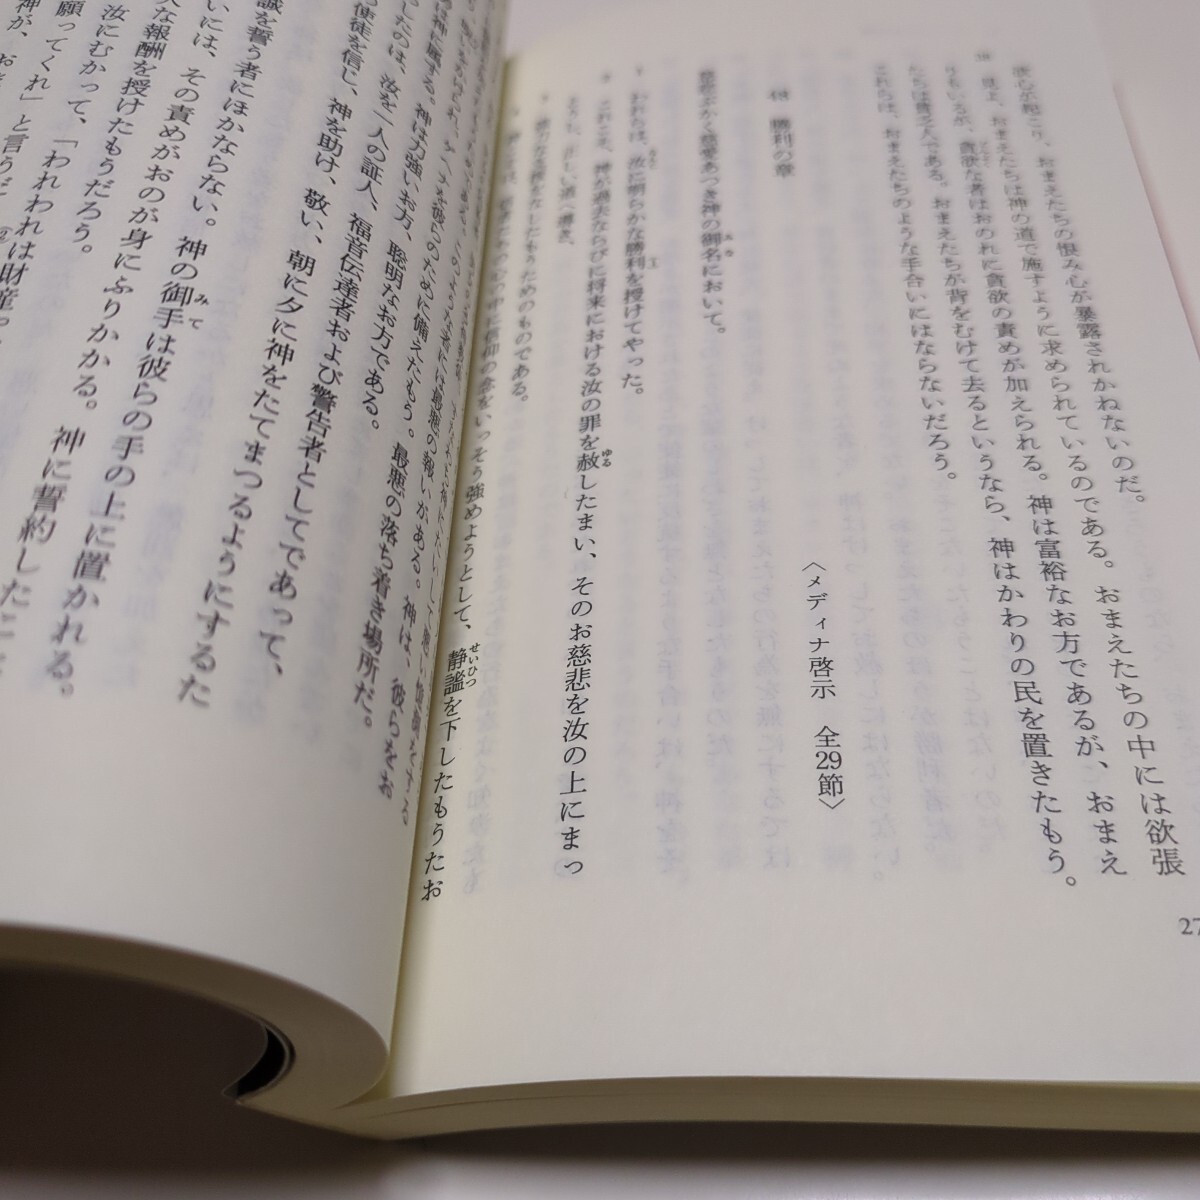 欲心が起こり、おまえたちの恨み心が暴露されかねないのだ。
見よ、おまえたちは神の道で施すように求められているのである。おまえたちの中には欲張
りもいるが、貪欲な者はおのれに貪欲の責めが加えられる。神は富裕なお方であるが、おまえ
たちは貧乏人である。おまえたちが背をむけて去るというなら、神はかわりの民を置きたもう。
それらは、おまえたちのような手合いにはならないだろう。
48 勝利の章
〈メディナ啓示 全29節〉
慈悲ぶかく慈愛あつき神の御名において。
われらは、汝に明らかな勝利を授けてやった。
これこそ、神が過去ならびに将来における汝の罪を赦したまい、そのお慈悲を汝の上にまっ
とうし、正しい道へ導き、
強力な援助をなしたもうためのものである。
信仰の念をいっそう強めようとして、静謐を下したもうたお
最悪の報いがある。神は、彼らをお
ゲヘナを彼らのために備えたもう。最悪の落ち着き場所だ。
神に属する。神は力強いお方、聡明なお方である。
したのは、汝を一人の証人、福音伝達者および警告者としてであって、
使徒を信じ、神を助け、敬い、朝に夕に神をたてまつるようにするた
誠を誓う者にほかならない。神の御手は彼らの手の上に置かれる。
いには、その責めがおのが身にふりかかる。神に誓約したこ
な報酬を授けたもうだろう。
汝にむかって、「われわれは財産
願ってくれ」と言うだ
27